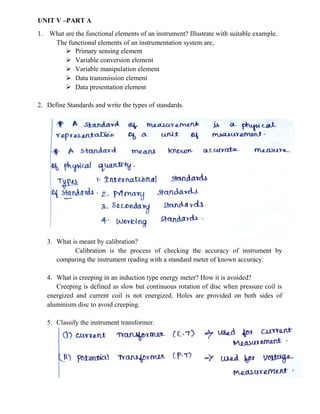 UNIT V –PART A
1. What are the functional elements of an instrument? Illustrate with suitable example.
The functional elements of an instrumentation system are,
➢ Primary sensing element
➢ Variable conversion element
➢ Variable manipulation element
➢ Data transmission element
➢ Data presentation element
2. Define Standards and write the types of standards.
* A standard of measurement is a physical
representation of a unit of measurement.
* A standard means known accurate measure
of physical quantity.
Types 1. International standards
of standards. 2. Primary standards
3. Secondary standards
4. Working standards.
3. What is meant by calibration?
Calibration is the process of checking the accuracy of instrument by
comparing the instrument reading with a standard meter of known accuracy.
4. What is creeping in an induction type energy meter? How it is avoided?
Creeping is defined as slow but continuous rotation of disc when pressure coil is
energized and current coil is not energized. Holes are provided on both sides of
aluminium disc to avoid creeping.
5. Classify the instrument transformer.
(i) current Transformer (C.T) => used for current
Measurement.
(ii) Potential Transformer (P.T) -> used for voltage
Measurement.